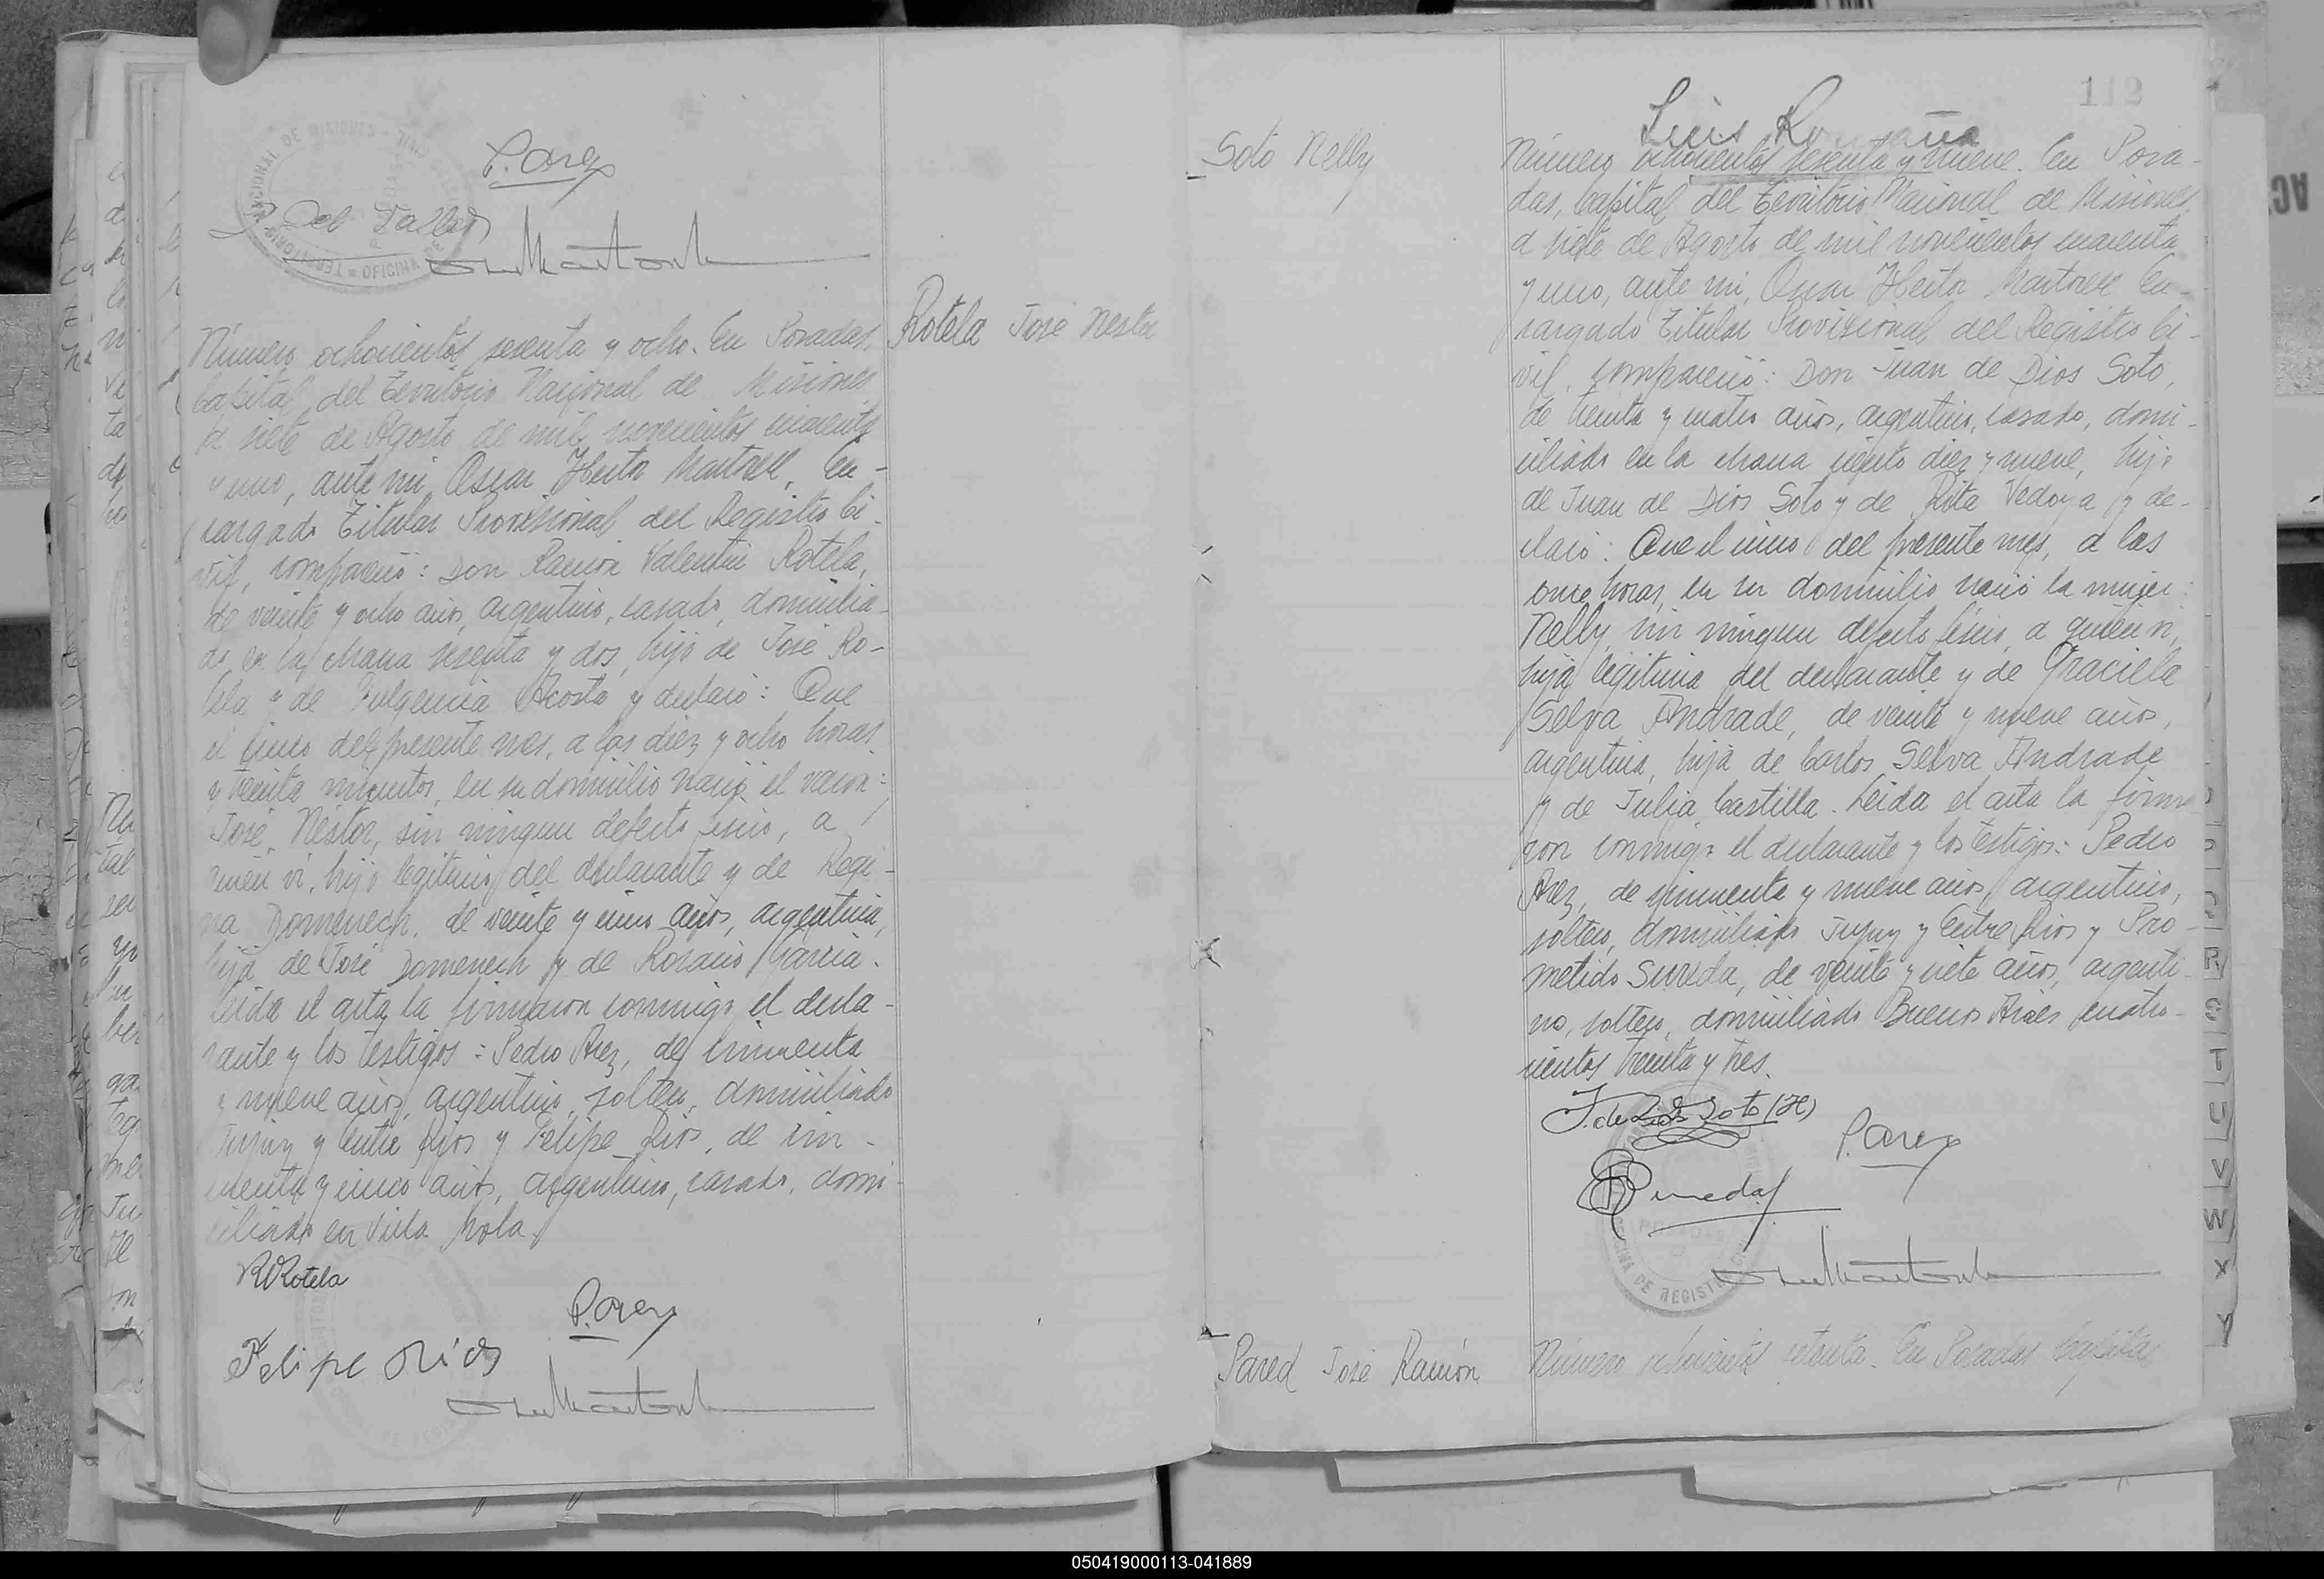 P. Arez
Del Valle
Número ochocientos sesenta y ocho. En Posadas,
Capital del Territorio Nacional de Misiones
a siete de Agosto de mil novecientos cuarenta
y uno, ante mi, Oscar Hector Martorell, En-
cargado Titular Provisional del Registro Ci-
vil, compareció: Don Ramón Valentin Rotela,
de veinte y ocho años, argentino, casado, domicilia-
do en la chacra sesenta y dos, hijo de José Ro-
tela y de Fulgencia Acosta y declaró: Que
el cinco del presente mes, a las diez y ocho horas
y treinta minutos, en su domicilio nació el varón:
José Néstor, sin ningun defecto fisico, a
quien vi, hijo legitimo del declarante y de Regi-
na Domenech, de veinte y cinco años, argentina,
hija de José Domenech y de Rosario Garcia.
Leida el acta la firmaron conmigo el decla-
rante y los testigos: Pedro Arez, de cincuenta
y nueve años, argentino, soltero, domiciliado
Jujuy y Entre Rios y Felipe Rios, de cin-
cuenta y cinco años, argentino, casado, domi-
ciliado en Villa Mola.
RVRotela
P. Arez
Felipe Rios
Rotela José Nestor
112
Luis Romaña
Soto Nelly
Número ochocientos sesenta y nueve. En Posa-
das, Capital del Territorio Nacional de Misiones
a siete de Agosto de mil novecientos cuarenta
y uno, ante mi, Oscar Hector Martorell En-
cargado Titular Provisional del Registro Ci-
vil, compareció: Don Juan de Dios Soto,
de treinta y cuatro años, argentino, casado, domi-
ciliado en la chacra ciento diez y nueve, hijo
de Juan de Dios Soto y de Rita Vedoya y de-
claró: Que el cinco del presente mes, a las
once horas, en su domicilio nació la mujer:
Nelly, sin ningun defecto fisico, a quien vi,
hija legitima del declarante y de Graciela
Selva Andrade, de veinte y nueve años,
argentina, hija de Carlos Selva Andrade
y de Julia Castilla. Leida el acta la firma-
ron conmigo el declarante y los testigos: Pedro
Arez, de cincuenta y nueve años, argentino,
soltero, domiciliado Jujuy y Entre Rios y Pro-
metido Sureda, de veinte y siete años, argenti-
no, soltero, domiciliado Buenos Aires cuatro-
cientos treinta y tres.
J. de Dios Soto (H)
P. Arez
OFICINA DE REGISTRO CIVIL
Pared José Ramón
Número ochocientos setenta. En Posadas Capital
R
S
T
U
V
W
X
Y
050419000113-041889